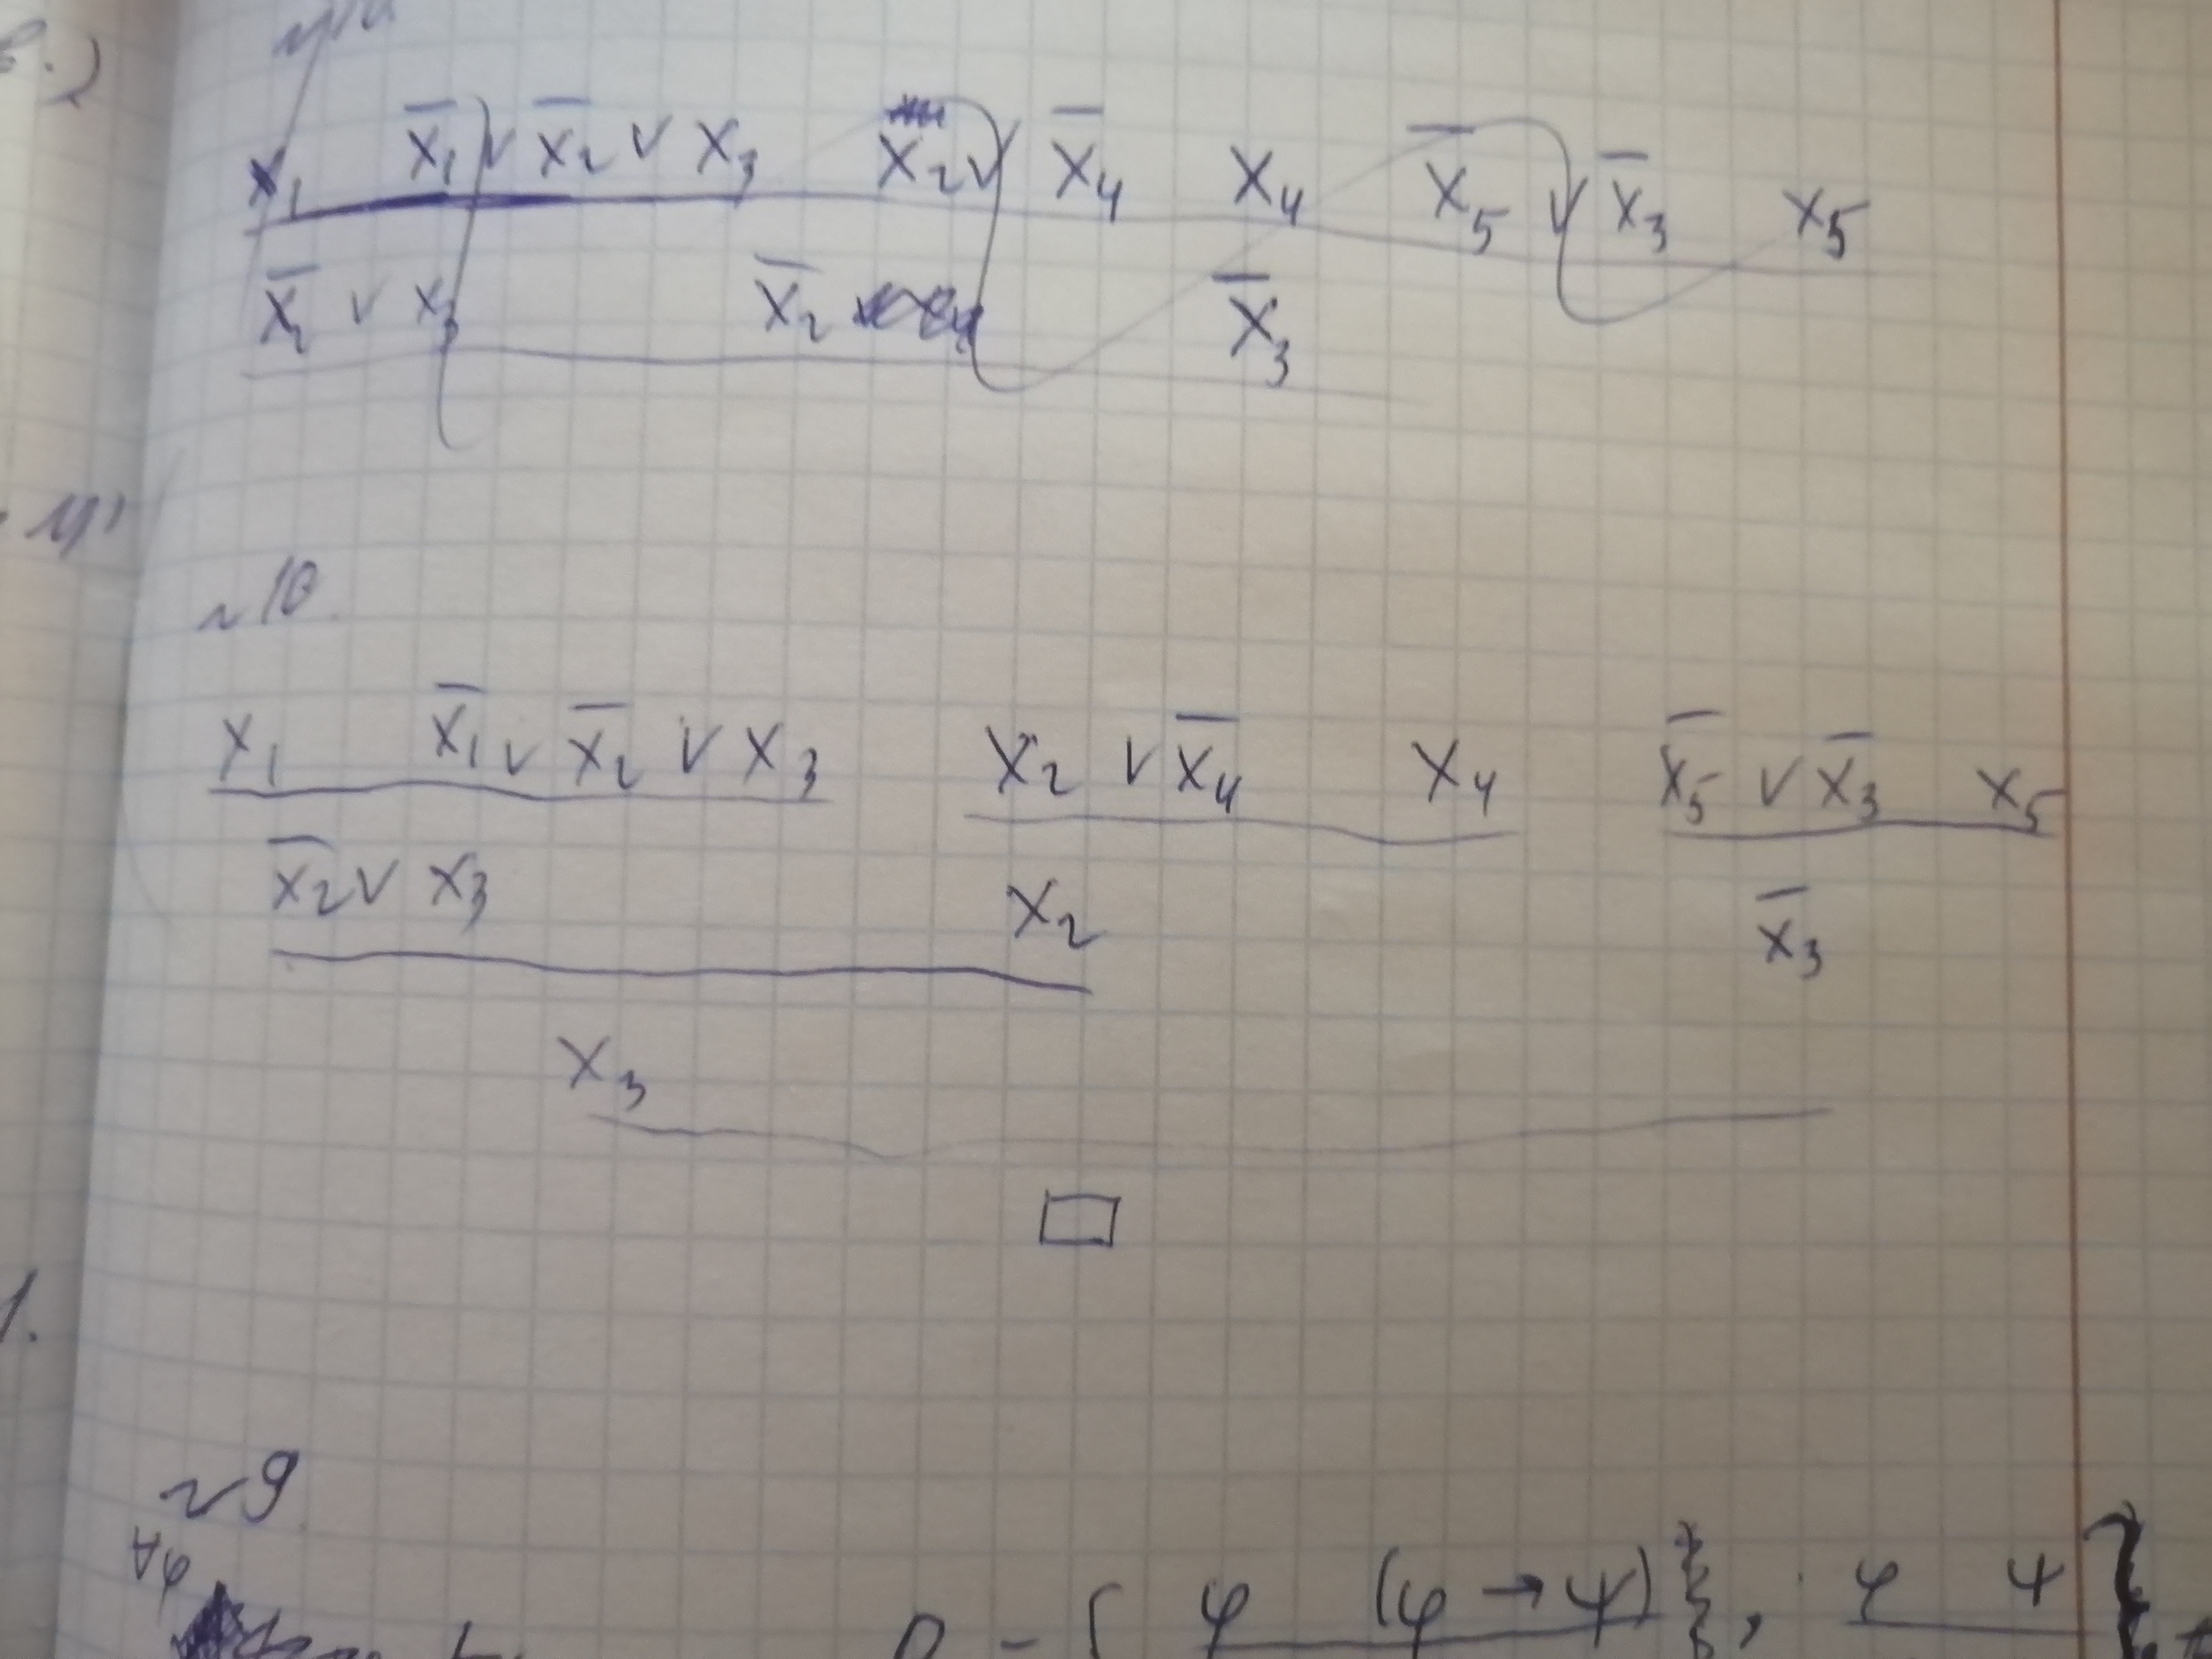 x̄₁ ∨ x̄₂ ∨ x₃ x₂ ∨ x̄₄ x₄ x̄₅ ∨ x̄₃ x₅
∨ x₃ x̄₂ x̄₃
~10.
x₁ x̄₁ ∨ x̄₂ ∨ x₃ x₂ ∨ x̄₄ x₄ x̄₅ ∨ x̄₃ x₅
x̄₂ ∨ x₃ x₂ x̄₃
x₃
□
1.
~9.
∀φ
φ (φ → ψ) } , φ ψ }